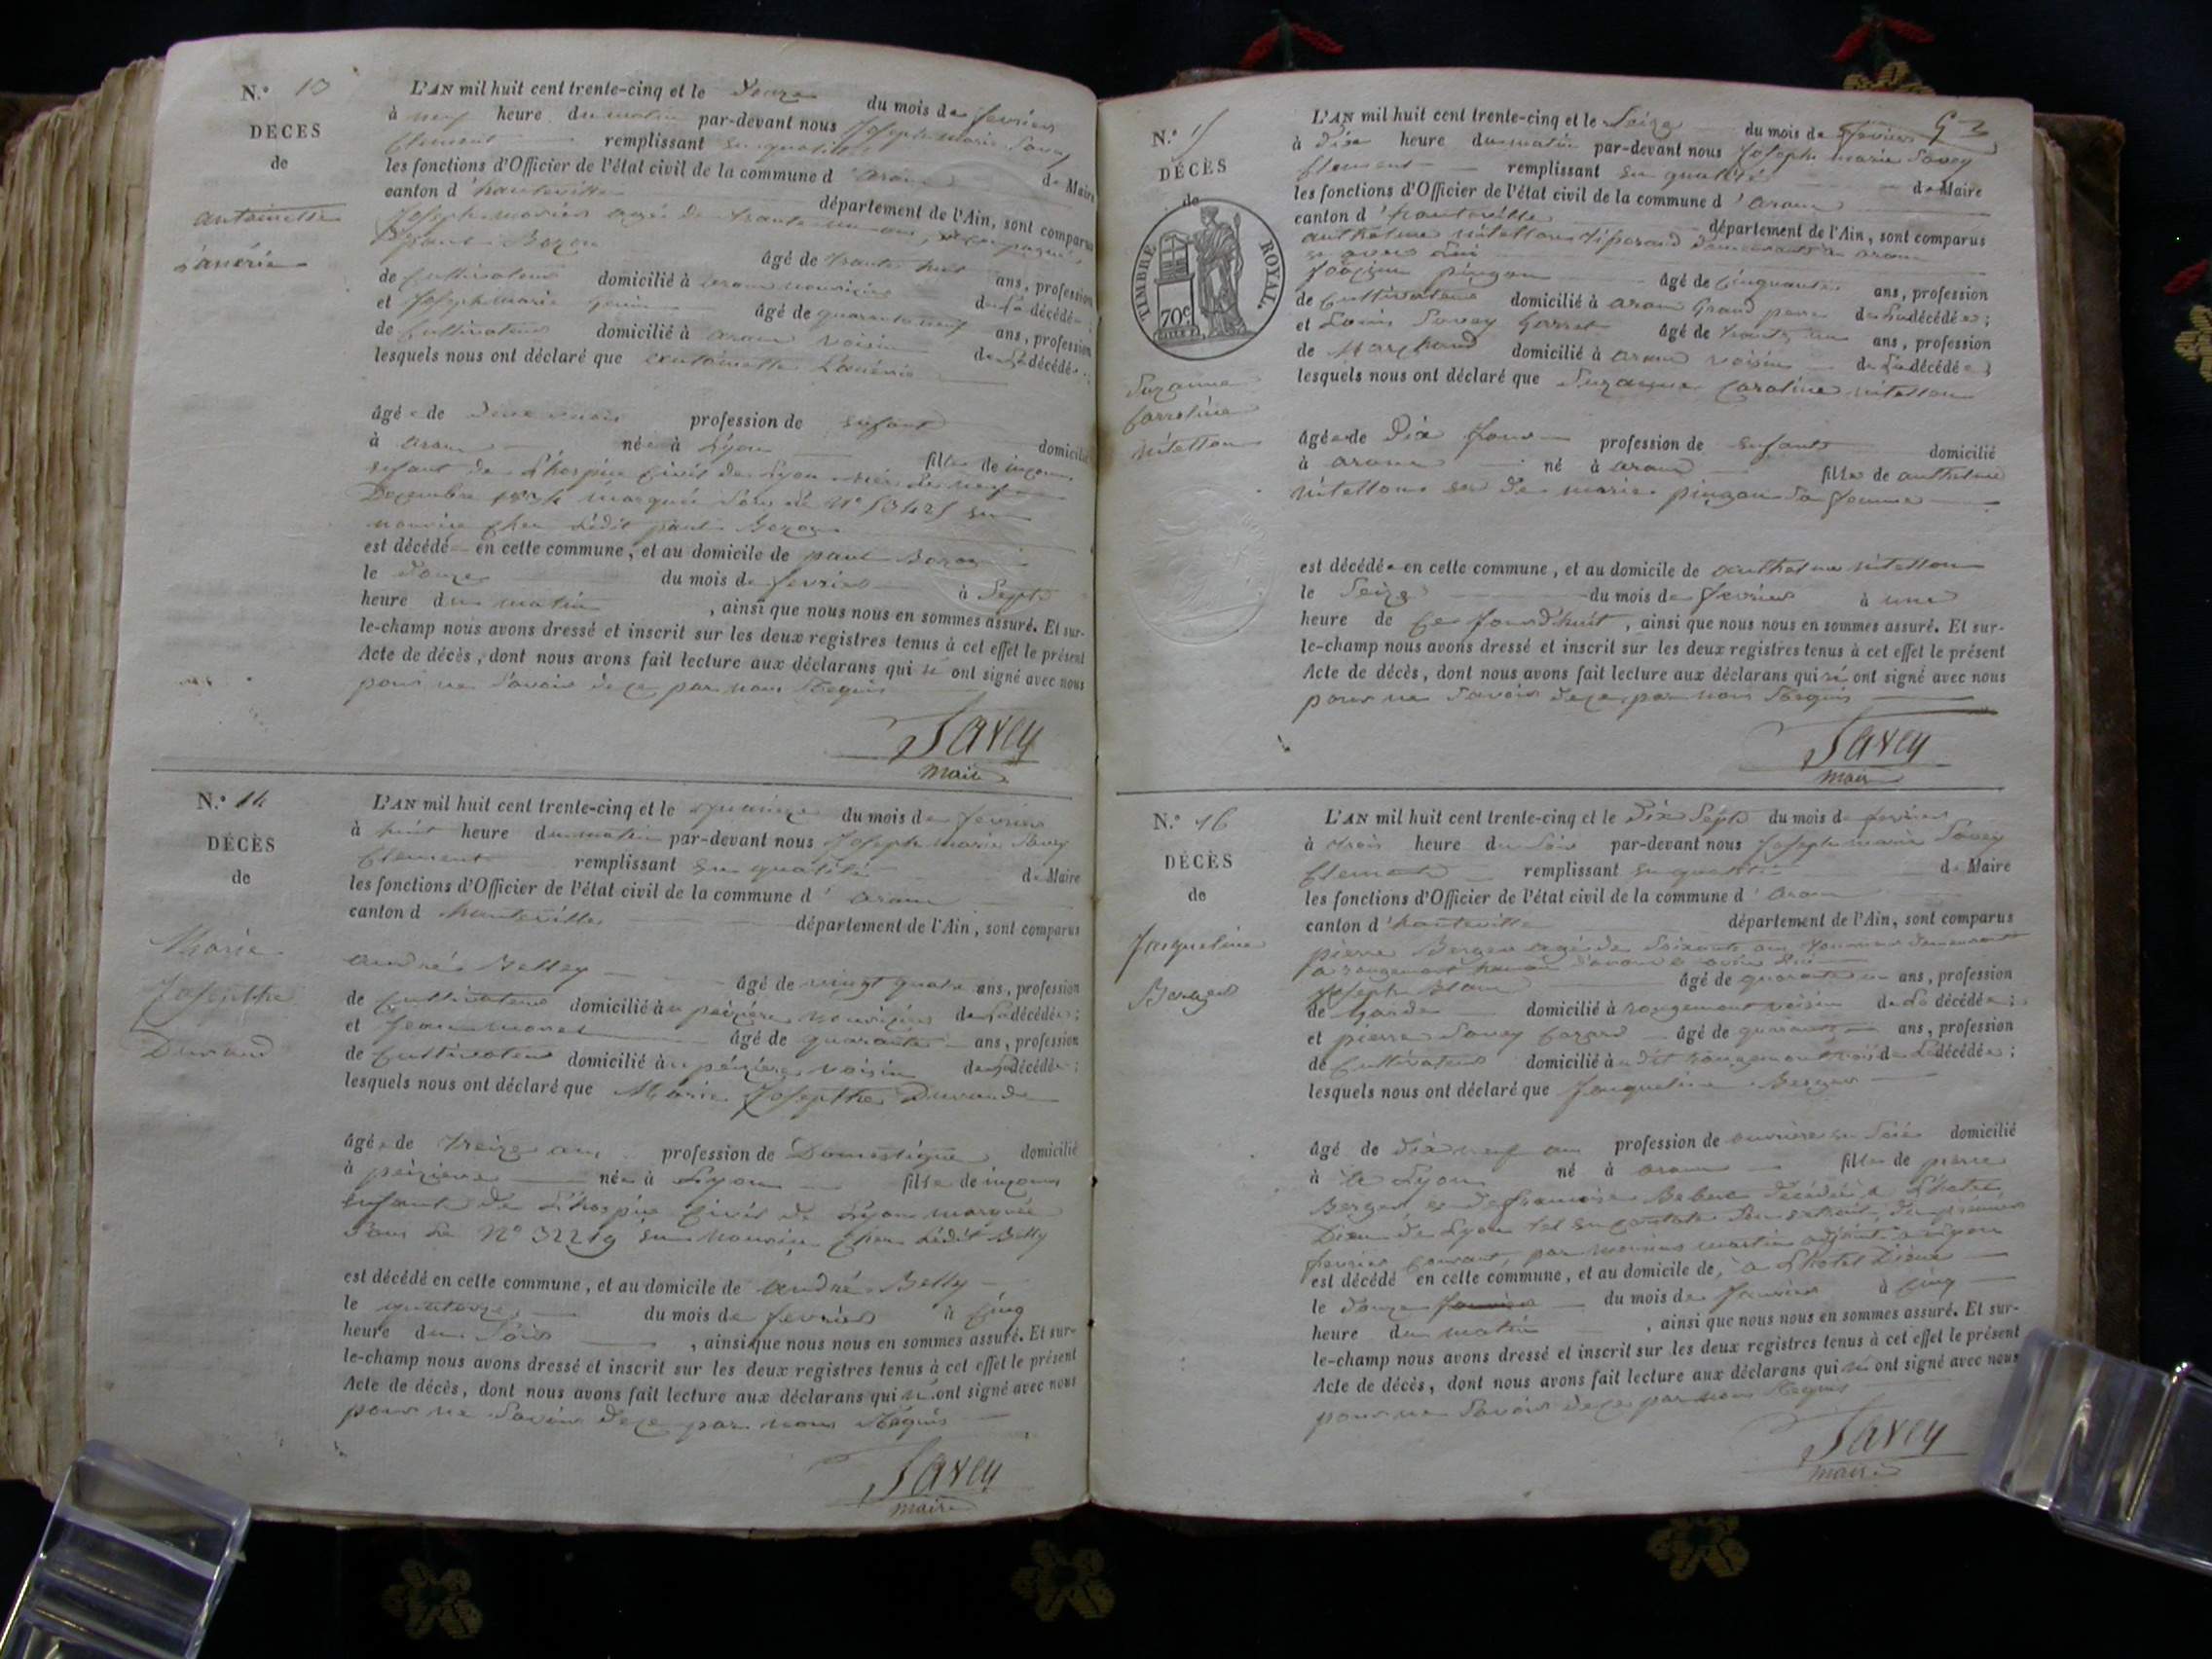 N.o 13
DÉCES
de
antoinette
L'AN mil huit cent trente-cinq et le Douze du mois de fevrier
à neuf heure du matin par-devant nous Joseph marie Savey
Clement remplissant en qualité de Maire
les fonctions d'Officier de l'état civil de la commune d' aranc
canton d'hauteville département de l'Ain, sont comparus
paul Bozon âgé de trente huit ans, profession
de Cultivateur domicilié à aranc nourricier de la décédée;
et Joseph marie âgé de quarante neuf ans, profession
de Cultivateur domicilié à aranc voisin de la décédée;
lesquels nous ont déclaré que antoinette
âgée de mois profession de enfant domicilié
à aranc née à Lyon fille de
enfant de L'hospice Civil de Lyon née le neuf
Decembre 1834 marquée sous le N° 53425 en
nourrice chez Ledit paul Bozon
est décédé en cette commune, et au domicile de paul Bozon
le Douze du mois de fevrier à Sept
heure du matin, ainsi que nous nous en sommes assuré. Et sur-
le-champ nous avons dressé et inscrit sur les deux registres tenus à cet effet le présent
Acte de décès, dont nous avons fait lecture aux déclarans qui n' ont signé avec nous
pour ne Savoir de ce par nous Requis
Savey
maire
N.o 14
DÉCÈS
de
Marie
Josephte
Durand
L'AN mil huit cent trente-cinq et le quinze du mois de fevrier
à huit heure du matin par-devant nous Joseph marie Savey
Clement remplissant en qualité de Maire
les fonctions d'Officier de l'état civil de la commune d' aranc
canton d hauteville département de l'Ain, sont comparus
andré Belley âgé de vingt quatre ans, profession
de Cultivateur domicilié à pézière nourricier de la décédée;
et Jean monet âgé de quarante ans, profession
de Cultivateur domicilié à pézière voisin de la décédée;
lesquels nous ont déclaré que Marie Josephte Durand
âgée de treize ans profession de Domestique domicilié
à pézière née à Lyon fille de
enfant de L'hospice Civil de Lyon marquée
sous Le N° 32219 en nourrice chez Ledit Belly
est décédé en cette commune, et au domicile de andré Belly
le quatorze du mois de fevrier à Cinq
heure du Soir, ainsi que nous nous en sommes assuré. Et sur-
le-champ nous avons dressé et inscrit sur les deux registres tenus à cet effet le présent
Acte de décès, dont nous avons fait lecture aux déclarans qui n' ont signé avec nous
pour ne Savoir de ce par nous Requis
Savey
maire
N.o 15
DÉCÈS
de
TIMBRE ROYAL
70c
Suzanne
Carroline
nitellon
L'AN mil huit cent trente-cinq et le Seize du mois de fevrier
à Dix heure du matin par-devant nous Joseph marie Savey
Clement remplissant en qualité de Maire
les fonctions d'Officier de l'état civil de la commune d' aranc
canton d'hauteville département de l'Ain, sont comparus
anthelme nitellon
pingon âgé de Cinquante ans, profession
de Cultivateur domicilié à aranc Grand pere de la décédée;
et Louis Savey âgé de trente ans, profession
de Marchand domicilié à aranc voisin de la décédée
lesquels nous ont déclaré que Suzanne Caroline nitellon
âgée de Dix Jour profession de enfant domicilié
à aranc né à aranc fille de anthelme
nitellon et de marie pingon sa femme
est décédée en cette commune, et au domicile de anthelme nitellon
le Seize du mois de fevrier à une
heure de Ce Jourd'huit, ainsi que nous nous en sommes assuré. Et sur-
le-champ nous avons dressé et inscrit sur les deux registres tenus à cet effet le présent
Acte de décès, dont nous avons fait lecture aux déclarans qui n' ont signé avec nous
pour ne Savoir de ce par nous Requis
Savey
maire
N.o 16
DÉCÈS
de
Jacqueline
Berger
L'AN mil huit cent trente-cinq et le Dix Sept du mois de fevrier
à trois heure du Soir par-devant nous Joseph marie Savey
Clement remplissant en qualité de Maire
les fonctions d'Officier de l'état civil de la commune d' aranc
canton d'hauteville département de l'Ain, sont comparus
pierre Berger agé de Soixante ans
Joseph âgé de quarante ans, profession
de Garde domicilié à rougemont voisin de la décédée;
et pierre Savey âgé de quarante ans, profession
de Cultivateur domicilié à dit rougemont de la décédée;
lesquels nous ont déclaré que Jacqueline Berger
âgé de Dix neuf ans profession de ouvrière en Soie domicilié
à Lyon né à aranc fille de pierre
Berger et de francoise décédée a L'hotel
Dieu de Lyon
fevrier Courant, par adjoint a Lyon
est décédé en cette commune, et au domicile de, a L'hotel Dieu
le Douze du mois de Janvier à Cinq
heure du matin, ainsi que nous nous en sommes assuré. Et sur-
le-champ nous avons dressé et inscrit sur les deux registres tenus à cet effet le présent
Acte de décès, dont nous avons fait lecture aux déclarans qui n' ont signé avec nous
pour ne Savoir de ce par nous Requis
Savey
maire